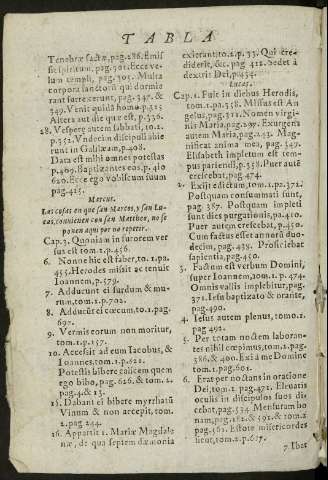 TABLA
Tenebræ factæ, pag. 286. Emisit
spiritum, pag. 301. Ecce velum
templi, pag. 305. Multa
corpora sanctorũ qui dormierant
surrexerunt, pag. 347. &
349. Venit quidã homo, p. 325
Altera autẽ die quæ est, p. 336.
28. Vespere autem sabbati, to. 1.
p. 352. Vndecim discipuli abierunt
in Galilæam, p. 408.
Data est mihi omnes potestas
p. 409. Baptizantes eos, p. 410
610. Ecce ego vobiscum sum
pag. 425.
Marcus.
Las cosas en que san Marcos, y san Lucas,
conuienen con san Matheo, no se
ponen aqui por no repetir.
Cap. 3. Quoniam in furorem versus
est tom. 1. p. 456
6. Nonne hic est faber, to. 1. pa.
455. Herodes misit ac tenuit
Ioannem, p. 579.
7. Adducunt ei surdum & mutum,
tom. 1. p. 702.
8. Adducũt ei cæcum, to. 1. pag.
697.
9. Vermis eorum non moritur,
tom. 1. p. 157.
10. Accessit ad eum Iacobus, &
Ioannes, tom. 1. p. 622.
Potestis bibere calicem quem
ego bibo, pag. 626. & tom. 2.
pag. 4. & 13.
15. Dabant ei bibere myrrhatũ
Vinum & non accepit, tom.
2. pag 244.
16. Apparuit 1. Mariæ Magdalenæ,
de qua septem dæmonia
exierant, to. 2. p. 33. Qui crediderit,
&c. pag 412. Sedet à
dextris Dei, p. 454.
Lucas.
Cap. 1. Fuit in diebus Herodis,
tom. 1. pa. 358. Missus est Angelus,
pag. 321. Nomen virginis
Maria, pag. 297. Exurgens
autem Maria, pag. 243. Magnificat
anima mea, pag. 349.
Elisabeth impletum est tempus
pariendi, p. 358. Puer autẽ
crescebat, pag. 474
2. Exijt edictum, tom. 1. pa. 372.
Postquam consummati sunt,
pag. 387. Postquam impleti
sunt dies purgationis, p. 420.
Puer autem crescebat, p. 450.
Cum factus esset annorũ duodecim,
pag. 439. Proficiebat
sapientia, pag. 450.
3. Factum est verbum Domini,
super Ioannem, tom. 1. p. 474
Omnis vallis implebitur, pag.
371. Iesus baptizato & orante,
pag. 490.
4. Iesus autem plenus, tomo. 1.
pag 492.
5. Per totam noctem laborantes
nihil cœpimus, tom. 1. pag.
586. & 400. Exi à me Domine
tom. 1. pag. 601.
6. Erat pernoctans in oratione
Dei, tom. 1 pag. 471. Eleuatis
oculis in discipulos suos dicebat,
pag. 534 Mensuram bonam,
pag. 162. & 592. & tom. 2
pag. 561. Estote misericordes
sicut, tom. 2. p. 617.
7. Ibat